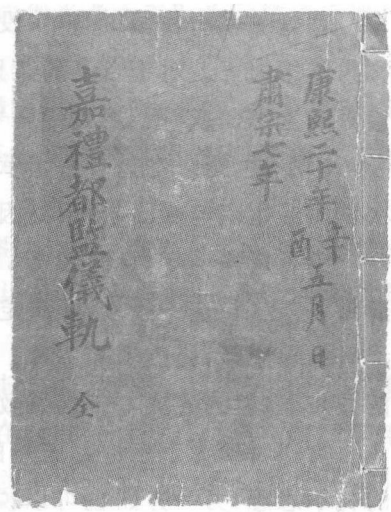 康熙二十年辛酉五月日
肅宗七年
嘉禮都監儀軌 全